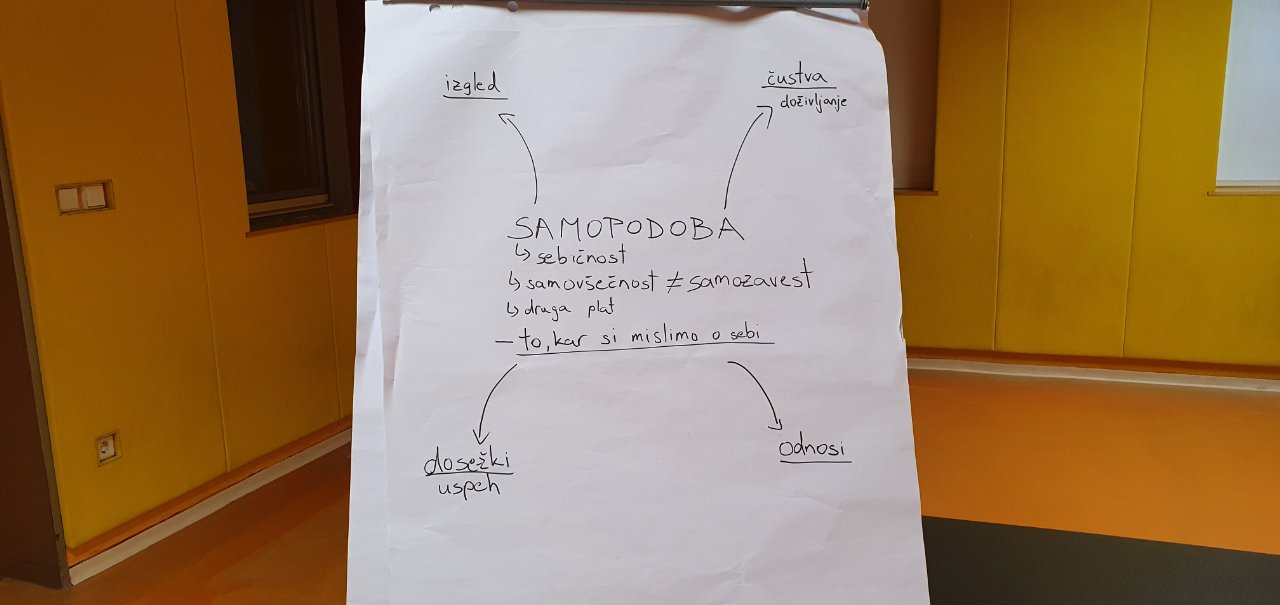 izgled
čustva
doživljanje
SAMOPODOBA
↳ sebičnost
↳ samovšečnost ≠ samozavest
↳ druga plat
– to, kar si mislimo o sebi
dosežki
uspeh
odnosi